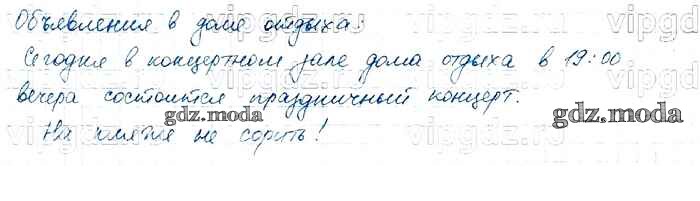 Объявления в доме отдыха:
Сегодня в концертном зале дома отдыха в 19:00
вечера состоится праздничный концерт.
gdz.moda
gdz.moda
На пляже не сорить!